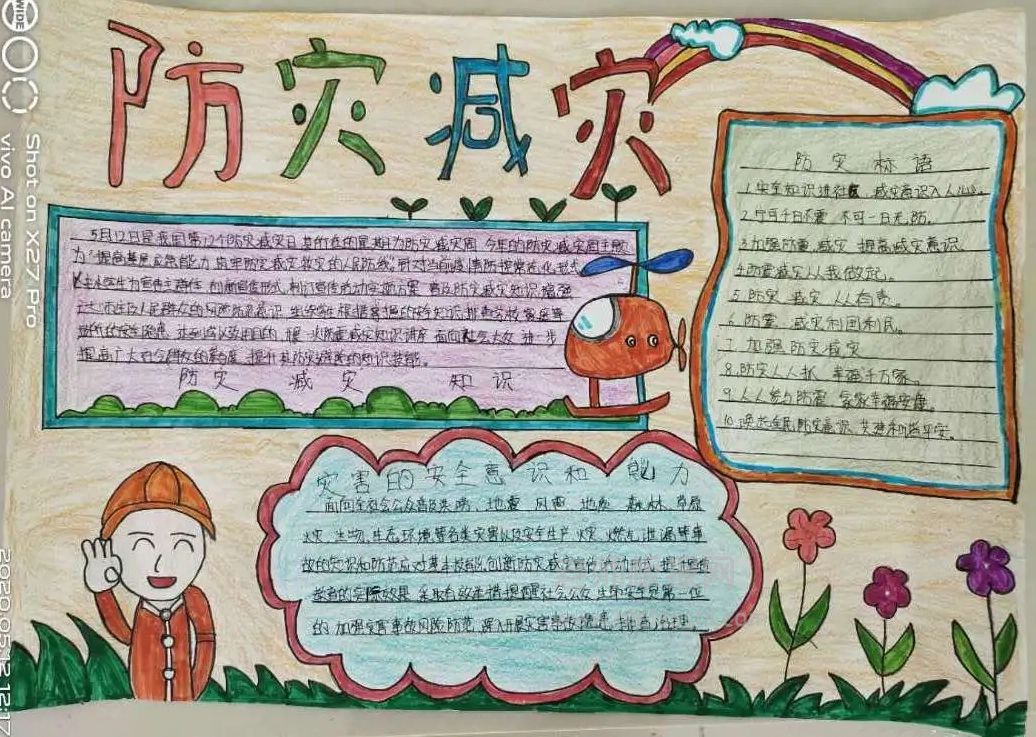 防灾减灾
5月12日是我国第12个防灾减灾日 其所在的星期为防灾减灾周 今年的防灾减灾周主题
为"提高基层应急能力 筑牢防灾减灾救灾的人民防线。针对当前疫情防控常态化形式
学生为宣传主群体 创新宣传形式 制订宣传活动实施方案 普及防灾减灾知识
提高广大 提升其防灾避险的知识技能。
防灾 减灾 知识
防灾标语
1.安全知识进社区 减灾意识入人心。
2.宁可千日不震 不可一日无防。
3.加强防震减灾 提高减灾意识
4.防震减灾从我做起。
5.防灾 减灾 人人有责。
6.防震 减灾利国利民。
7.加强防灾减灾
8.防灾人人抓 幸福千万家。
9.人人参与防震 家家幸福安康。
10.唤起全民防灾意识 共建和谐平安。
灾害的安全意识和能力
面向全社会公众普及洪涝 地震 风雹 地质 森林 草原
火灾 生物 生态环境等各类灾害以及安全生产 火灾 燃气泄漏等事
故的知识和防范应对基本技能 创新防灾减灾宣传活动形式 提
教育的实际效果 采取有效措施提醒社会公众 生命安全是第一位
的 加强灾害事故风险防范 深入开展灾害事故隐患 排查治理。
WIDE
Shot on X27 Pro
vivo AI camera
2020.05.12 12:17